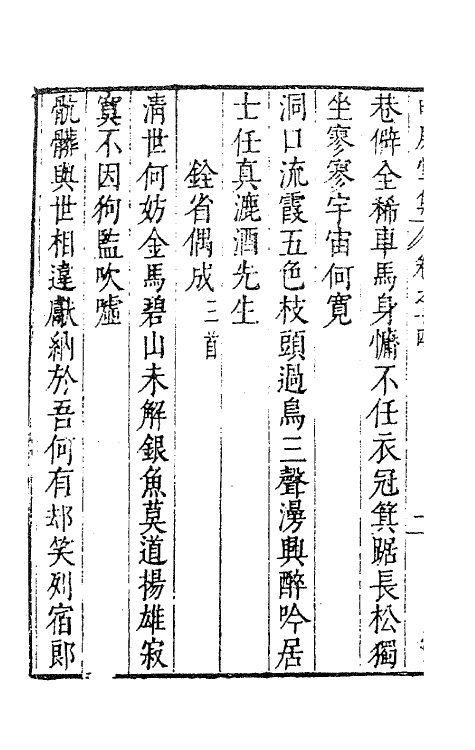 卷之十四
巷僻全稀車馬身慵不任衣冠箕踞長松獨
坐寥寥宇宙何寬
洞口流霞五色枝頭過鳥三聲漫興醉吟居
士任真漉酒先生
銓省偶成三首
清世何妨金馬碧山未解銀魚莫道揚雄寂
寞不因狗監吹噓
骯髒與世相違獻納於吾何有却笑列宿郎